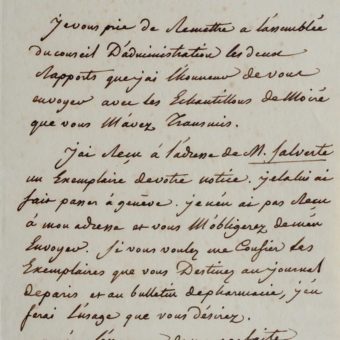 je vous prie de Remettre a l'assemblée
du conseil D'administration les deux
Rapports que j'ai l'honneur de vous
envoyer avec les Echantillons de Moiré
que vous M'avez Transmis.
j'ai Recu à l'adresse de M. Salverte
un Exemplaire de votre notice. je la lui ai
fait passer à genêve. je n'en ai pas Recu
à mon adresse et vous M'obligerez de m'en
Envoyer. Si vous voulez me Confier Les
Exemplaires que vous Destinez au journal
de paris et au bulletin de pharmacie, j'en
ferai l'usage que vous désirez.